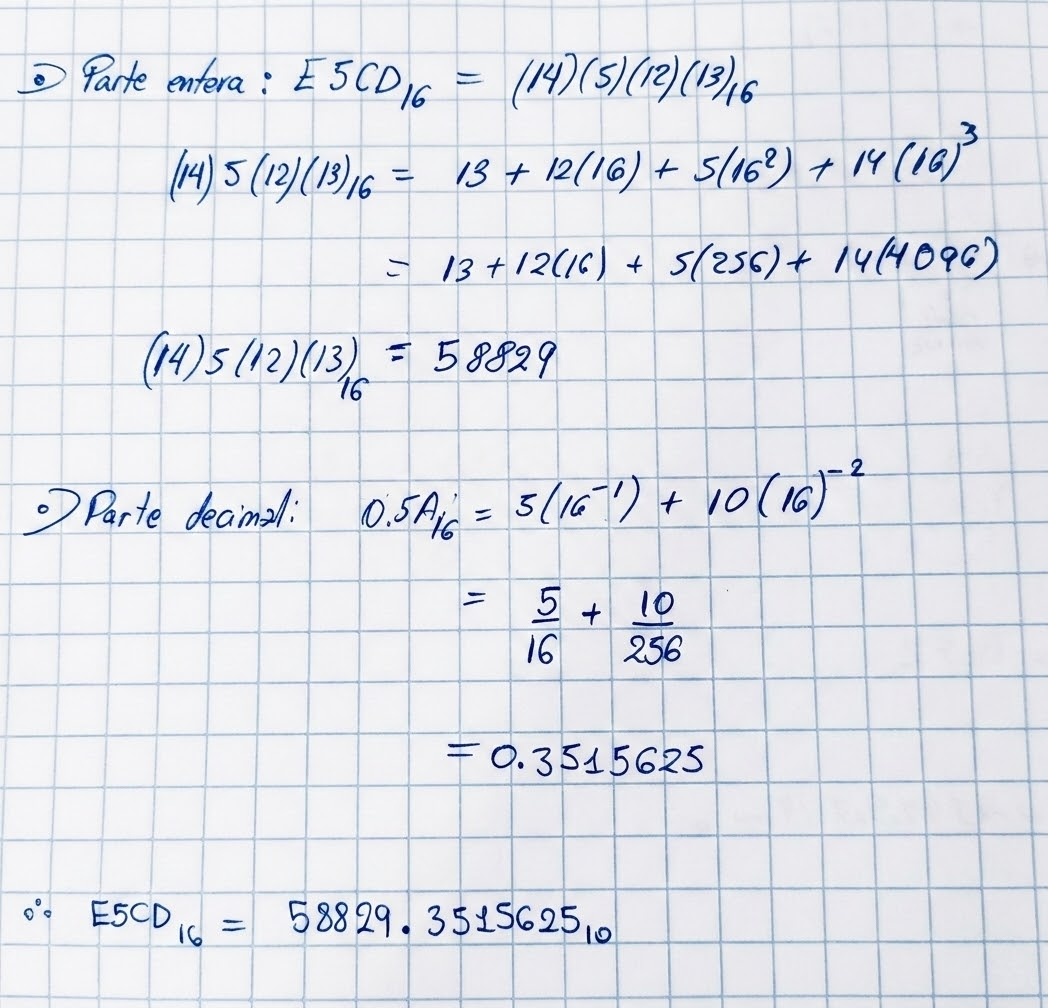 ⊙ Parte entera: E5CD₁₆ = (14)(5)(12)(13)₁₆
(14)5(12)(13)₁₆ = 13 + 12(16) + 5(16²) + 14(16)³
= 13 + 12(16) + 5(256) + 14(4096)
(14)5(12)(13)₁₆ = 58829
⊙ Parte decimal: 0.5A₁₆ = 5(16⁻¹) + 10(16)⁻²
= 5/16 + 10/256
= 0.3515625
∴ E5CD₁₆ = 58829.3515625₁₀